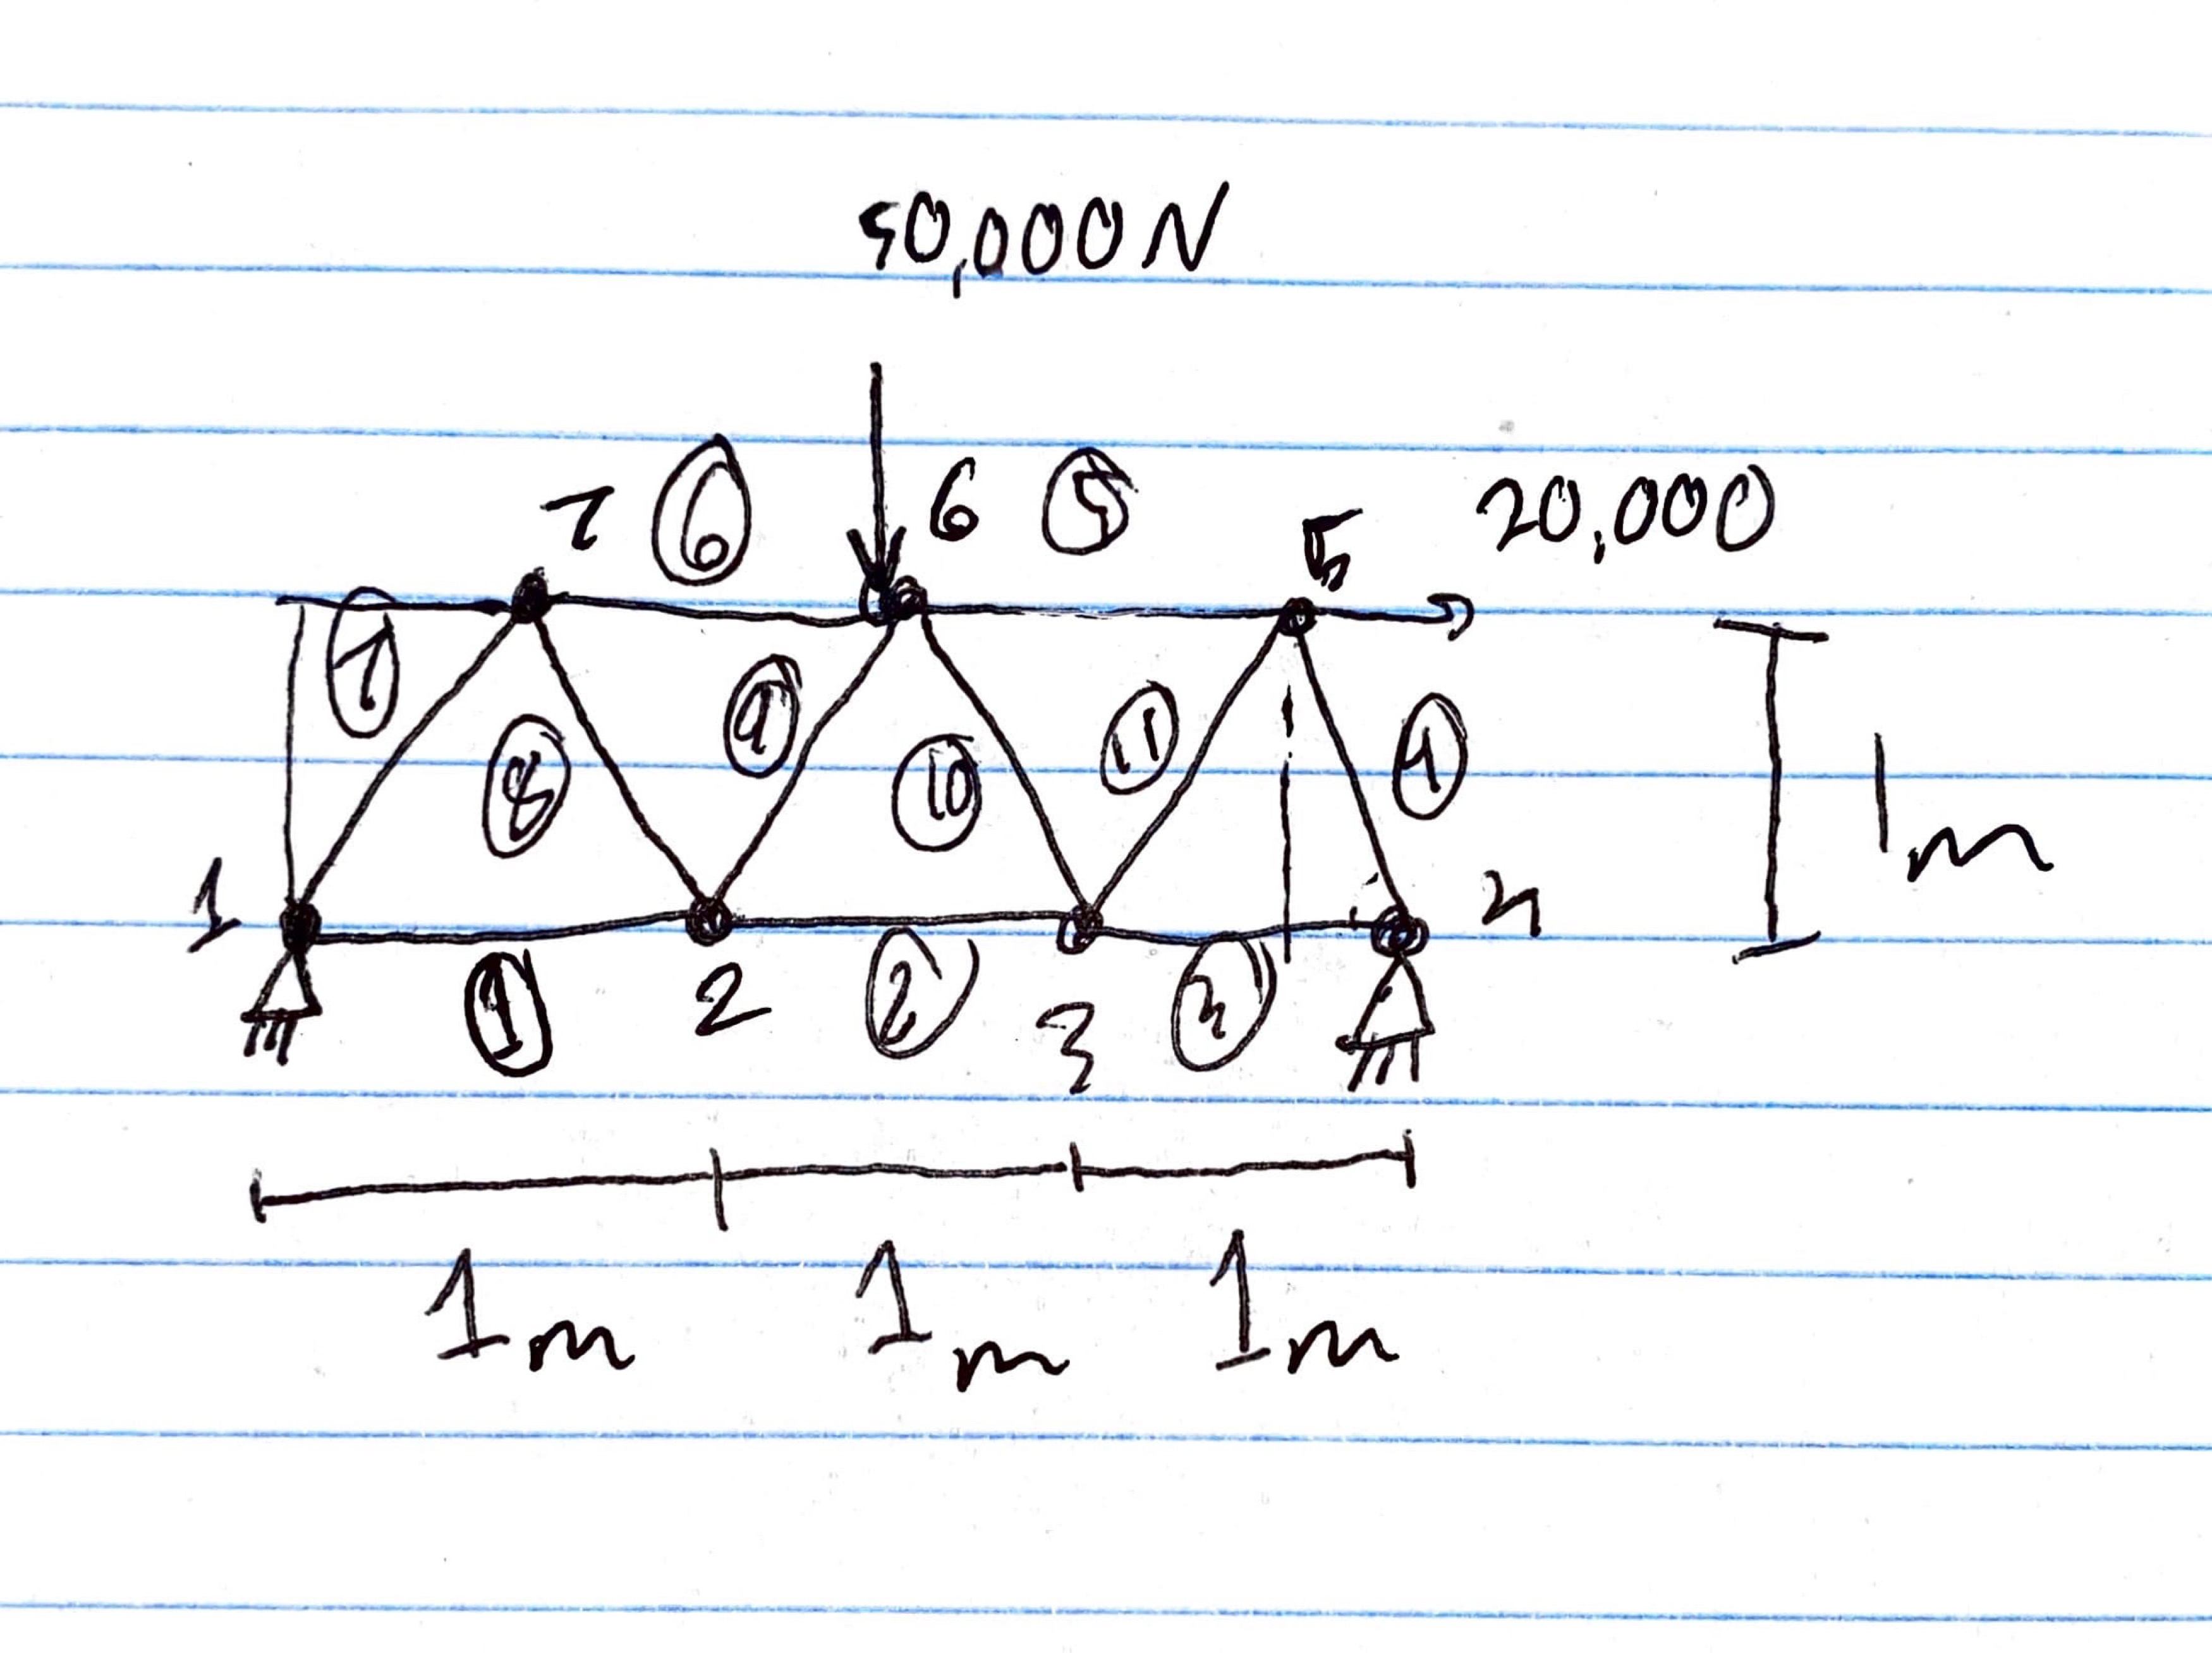 50,000N
7 6 6 5 5 20,000
7 8 9 10 11 4 1m
1 4
1 2 2 3 3
1m 1m 1m